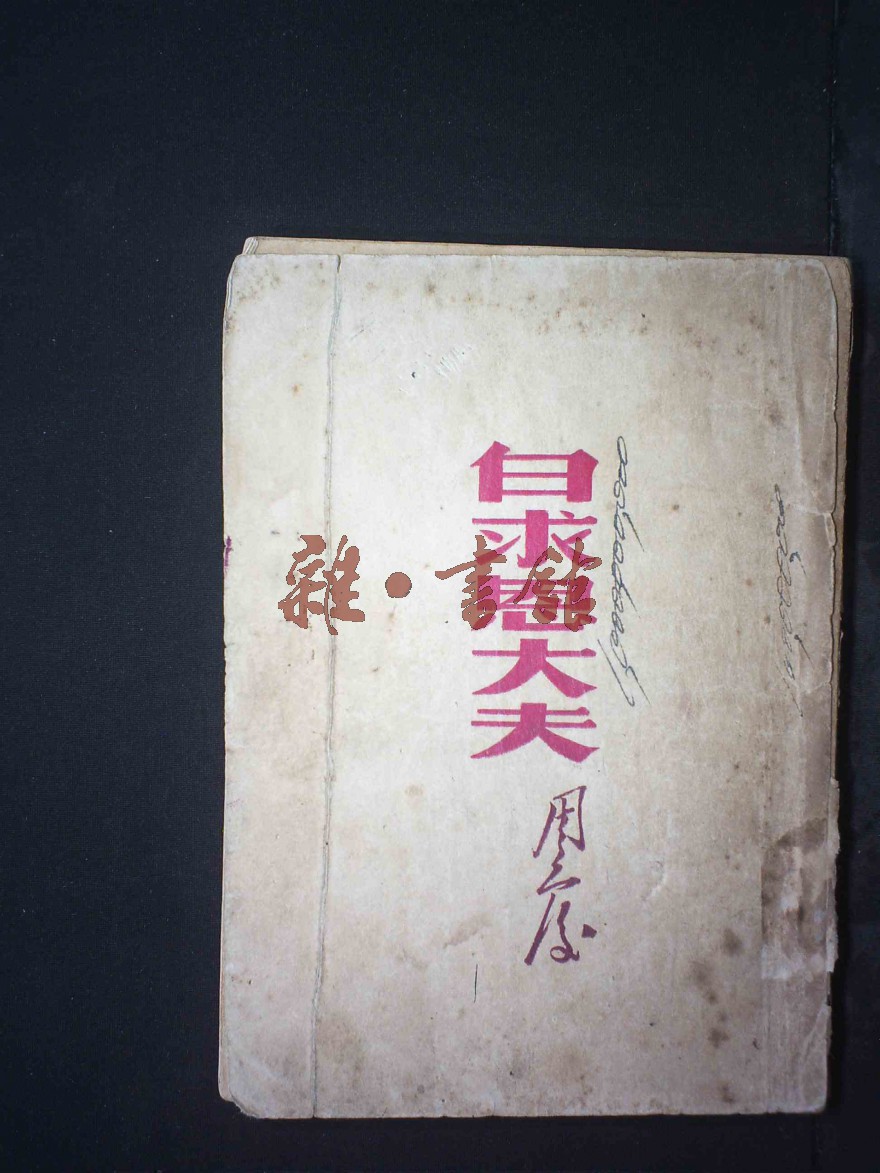 白求恩大夫
周而復
雜·書館